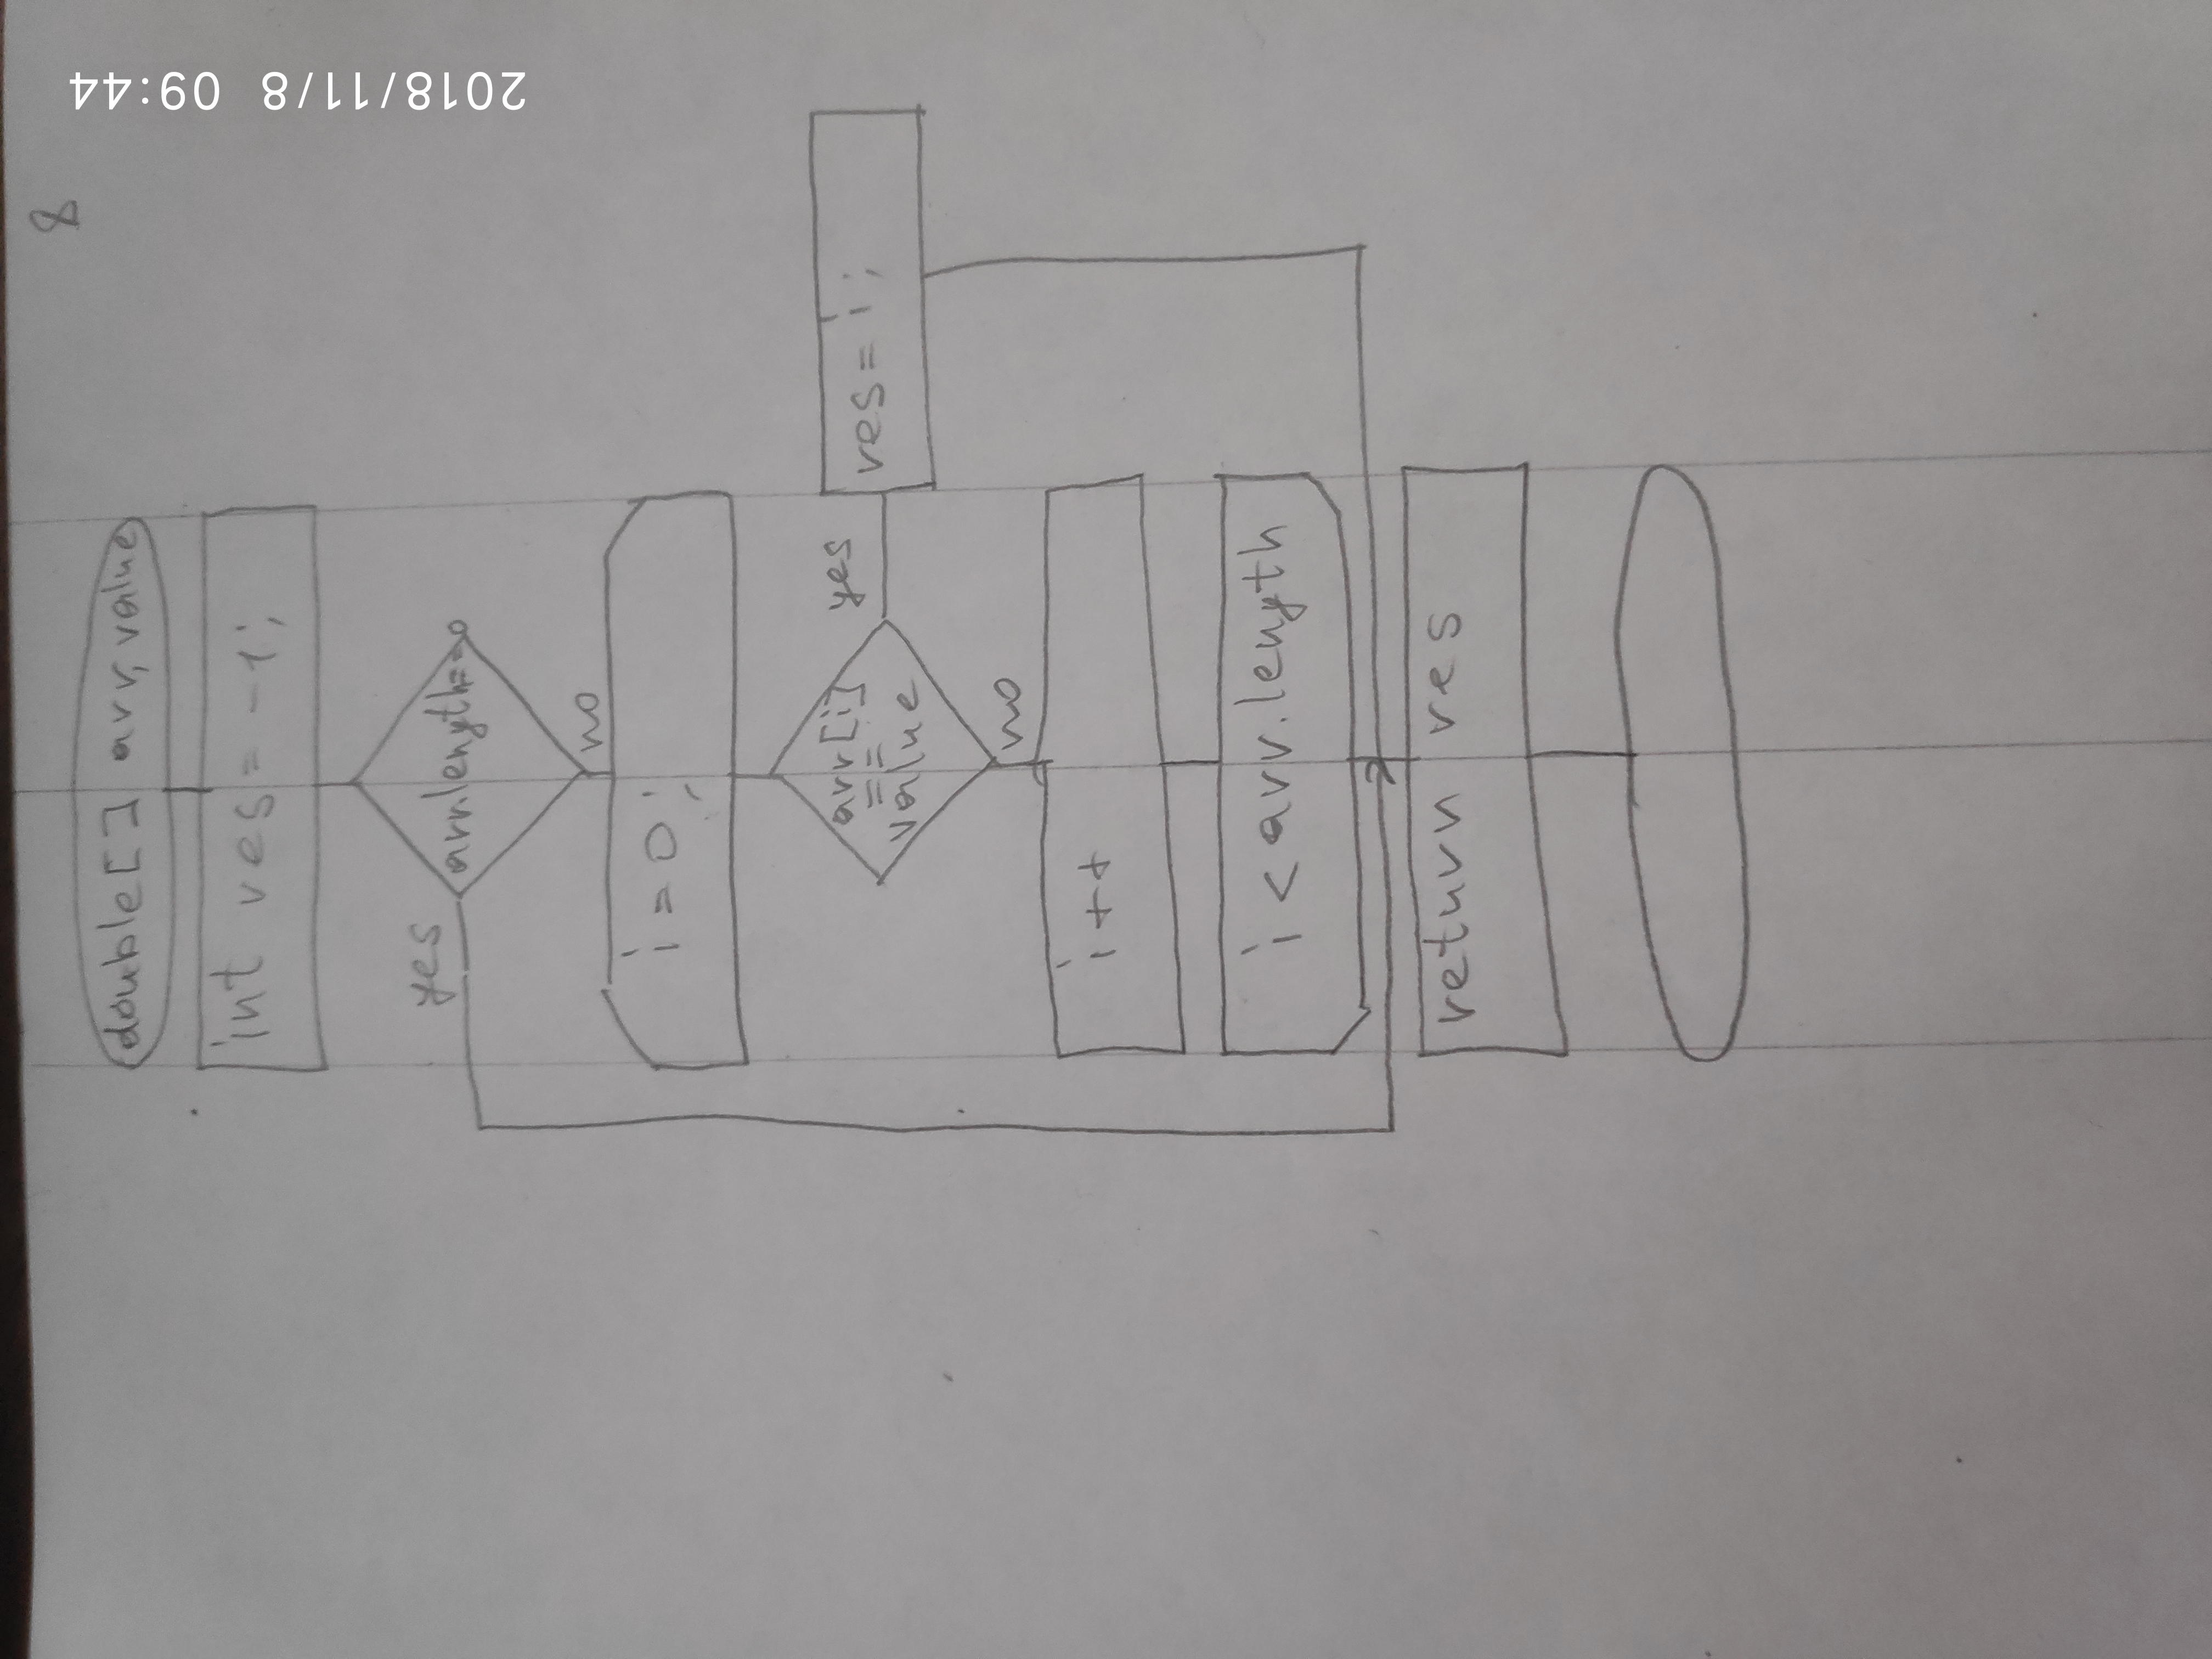 8
2018/11/8 09:44
double[] arr, value
int res = -1;
arr.length==0
yes
no
i = 0;
arr[i]
==
value
yes
res = i;
no
i++
i < arr.length
return res